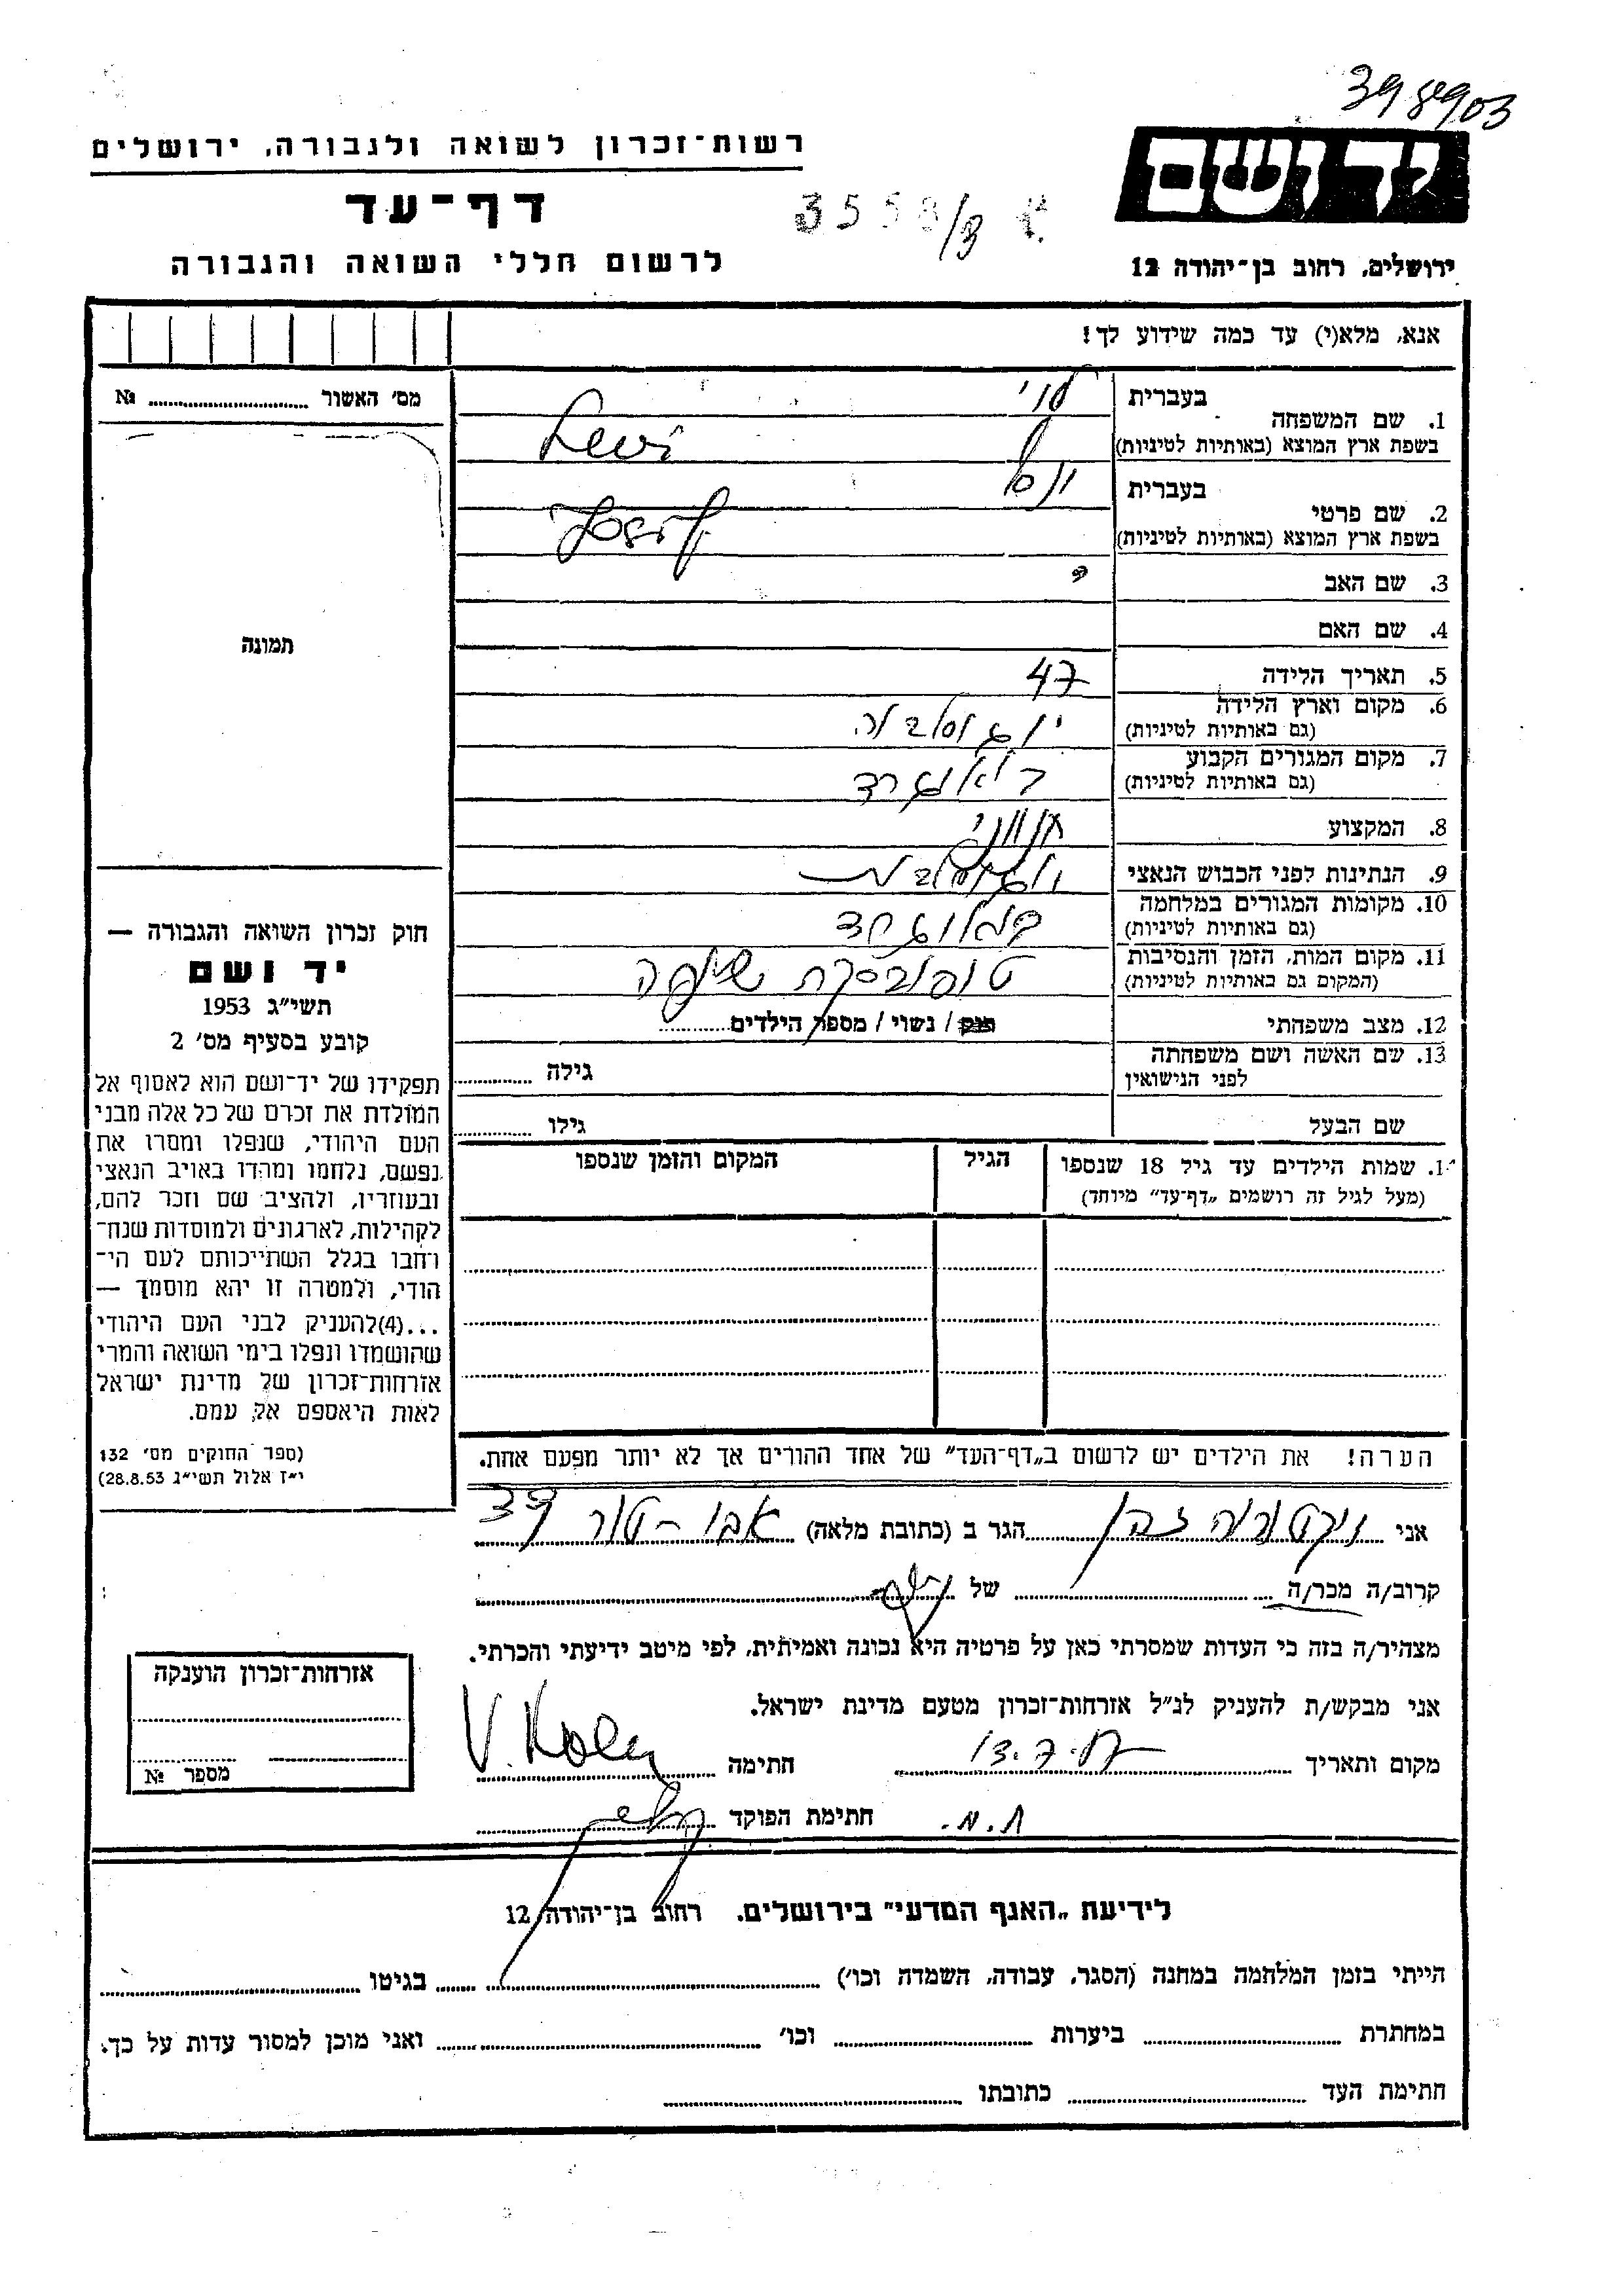 398903
רשות־זכרון לשואה ולגבורה, ירושלים
יד ושם
דף־עד
3558/3
לרשום חללי השואה והגבורה
ירושלים, רחוב בן־יהודה 12
אנא, מלא(י) עד כמה שידוע לך!
מס' האשור № 
בעברית לוי
1. שם המשפחה
בשפת ארץ המוצא (באותיות לטיניות) Levi
בעברית יוסף
2. שם פרטי
בשפת ארץ המוצא (באותיות לטיניות) Josef
3. שם האב ?
4. שם האם
תמונה
5. תאריך הלידה 47
6. מקום וארץ הלידה יוגוסלביה
(גם באותיות לטיניות)
7. מקום המגורים הקבוע בלוגרד
(גם באותיות לטיניות)
8. המקצוע חנווני
9. הנתינות לפני הכבוש הנאצי
10. מקומות המגורים במלחמה בלוגרד
(גם באותיות לטיניות)
11. מקום המות, הזמן והנסיבות טופובסקה שופה
(המקום גם באותיות לטיניות)
12. מצב משפחתי רווק / נשוי / מספר הילדים
13. שם האשה ושם משפחתה
לפני הנישואין גילה
שם הבעל גילו
1. שמות הילדים עד גיל 18 שנספו הגיל המקום והזמן שנספו
(מעל לגיל זה רושמים „דף־עד” מיוחד)
הערה! את הילדים יש לרשום ב„דף־העד” של אחד ההורים אך לא יותר מפעם אחת.
חוק זכרון השואה והגבורה —
יד ושם
תשי״ג 1953
קובע בסעיף מס' 2
תפקידו של יד־ושם הוא לאסוף אל
המולדת את זכרם של כל אלה מבני
העם היהודי, שנפלו ומסרו את
נפשם, נלחמו ומרדו באויב הנאצי
ובעוזריו, ולהציב שם וזכר להם,
לקהילות, לארגונים ולמוסדות שנח־
רבו בגלל השתייכותם לעם הי־
הודי, ולמטרה זו יהא מוסמך —
...(4)להעניק לבני העם היהודי
שהושמדו ונפלו בימי השואה והמרי
אזרחות־זכרון של מדינת ישראל
לאות היאספם אל עמם.
(ספר החוקים מס' 132
י״ז אלול תשי״ג 28.8.53)
אני ויקטוריה כהן הגר ב (כתובת מלאה) אבו - טור 39
קרוב/ה מכר/ה של
מצהיר/ה בזה כי העדות שמסרתי כאן על פרטיה היא נכונה ואמיתית, לפי מיטב ידיעתי והכרתי.
אני מבקש/ת להעניק לנ״ל אזרחות־זכרון מטעם מדינת ישראל.
מקום ותאריך 13.7.57 חתימה V. Koen
חתימת הפוקד
אזרחות־זכרון הוענקה
מספר №
לידיעת „האגף המדעי” בירושלים, רחוב בן־יהודה 12
הייתי בזמן המלחמה במחנה (הסגר, עבודה, השמדה וכו') בגיטו
במחתרת ביערות וכו' ואני מוכן למסור עדות על כך.
חתימת העד כתובתו